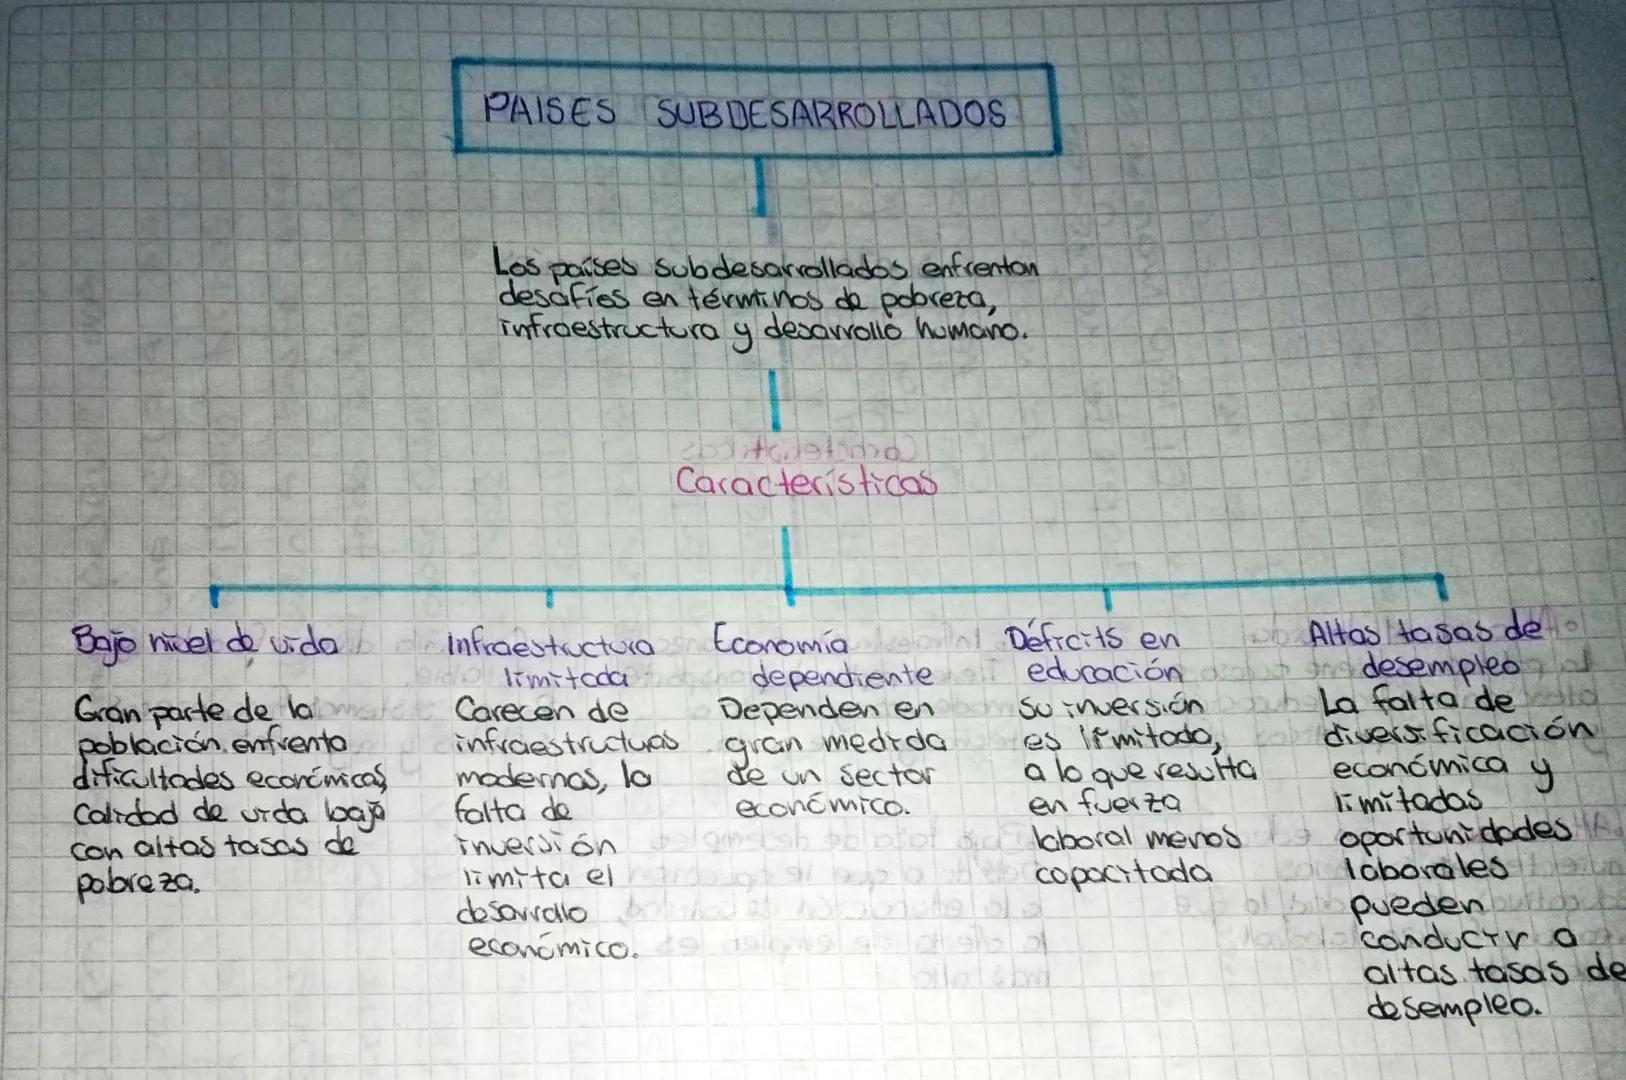 PAISES SUBDESARROLLADOS
Los países subdesarrollados enfrentan
desafíos en términos de pobreza,
infraestructura y desarrollo humano.
Características
Bajo nivel de vida
Gran parte de la
población enfrenta
dificultades económicas,
calidad de vida baja
con altas tasas de
pobreza.
Infraestuctura
limitada
Carecen de
infraestructuras
modernas, la
falta de
inversión
limita el
desarrollo
económico.
Economía
dependiente
Dependen en
gran medida
de un sector
económico.
Déficits en
educación
Su inversión
es limitada,
a lo que resulta
en fuerza
laboral menos
capacitada
Altas tasas de
desempleo
La falta de
diversificación
económica y
limitadas
oportunidades
laborales
pueden
conducir a
altas tasas de
desempleo.